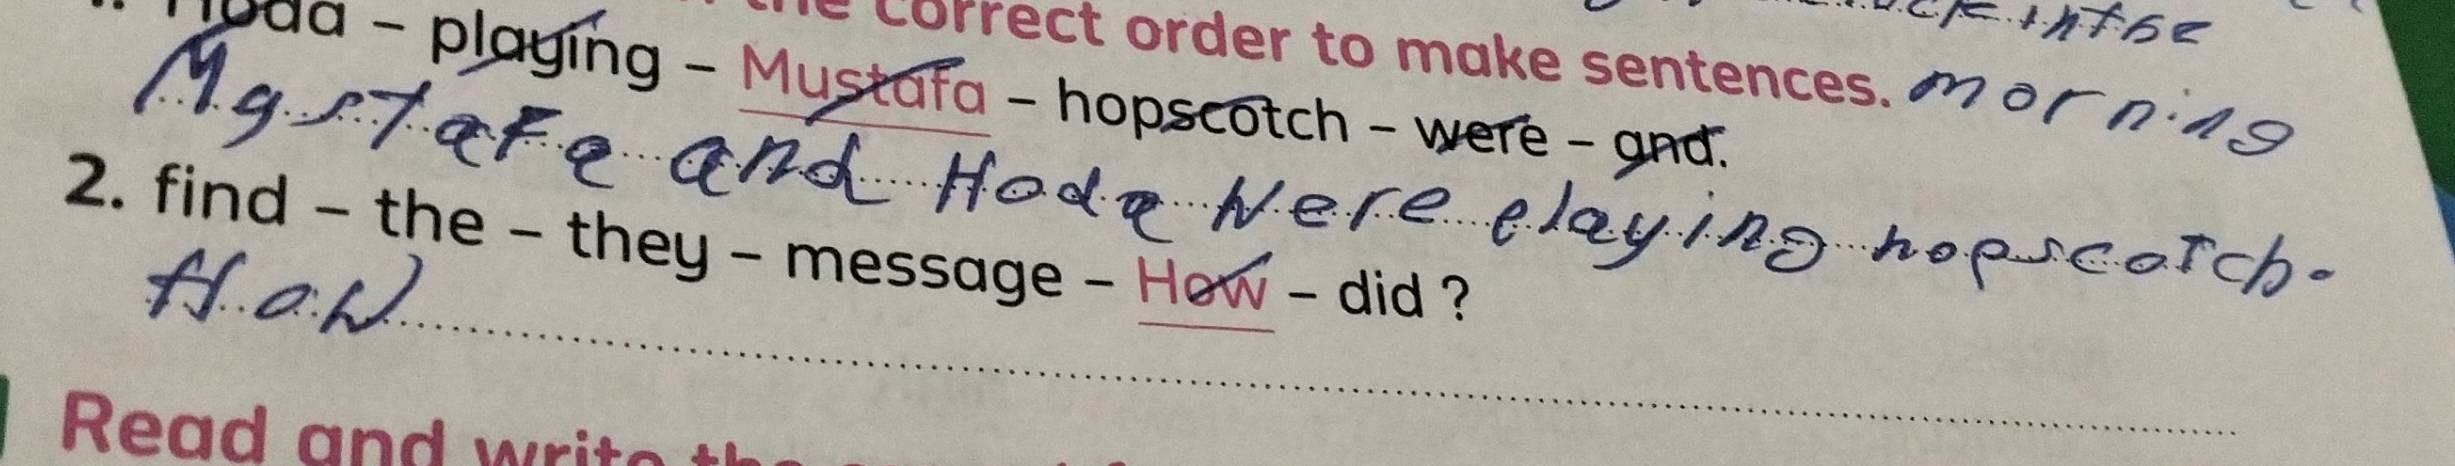 correct order to make sentences.
morning
Hoda - playing - Mustafa - hopscotch - were - and.
Mustafa and Hoda Were playing hopscotch.
2. find - the - they - message - How - did ?
How
Read and write